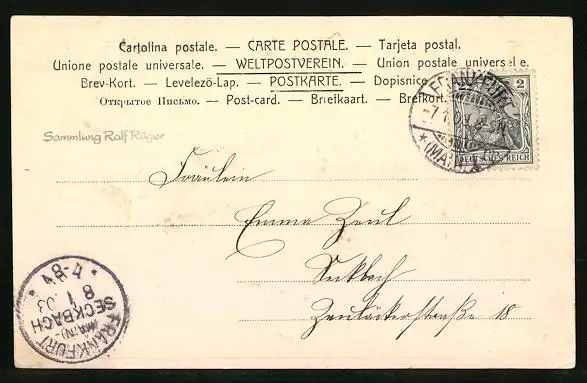 Cartolina postale. — CARTE POSTALE. — Tarjeta postal.
Unione postale universale. — WELTPOSTVEREIN. — Union postale universelle.
Brev-Kort. — Levelezö-Lap. — POSTKARTE. — Dopisnice.
Открытое Письмо. — Post-card. — Briefkaart. — Brefkort.
FRANKFURT
(MAIN)
2
DEUTSCHES REICH
Sammlung Ralf Rüger
Fräulein
Emma Zeul
Seckbach
18
7-8
8
1
03
FRANKFURT
(MAIN)-
SECKBACH